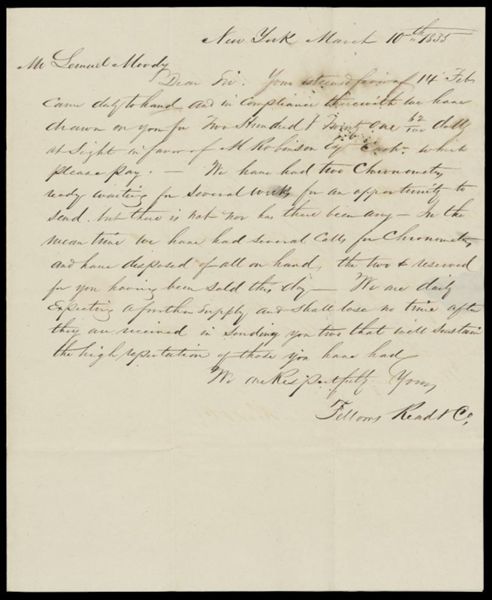 New York March 10th 1835
Mr Lemuel Moody
Dear Sir. Your esteemed favor of 14 Feb
came duly to hand and in compliance therewith we have
drawn on you for Two Hundred & Twenty One 62/100 dolls
at Sight in favor of M Robinson Esq Cash. which
please pay. — We have had two Chronometers
ready waiting for several weeks for an opportunity to
send. but there is not nor has there been any — In the
mean time we have had several Calls for Chronometers
and have disposed of all on hand, the two reserved
for you having been sold this day — We are daily
Expecting a further Supply and shall lose no time after
they are received in sending you two that will sustain
the high reputation of those you have had
We are Respectfully Yours
Fellows Read & Co